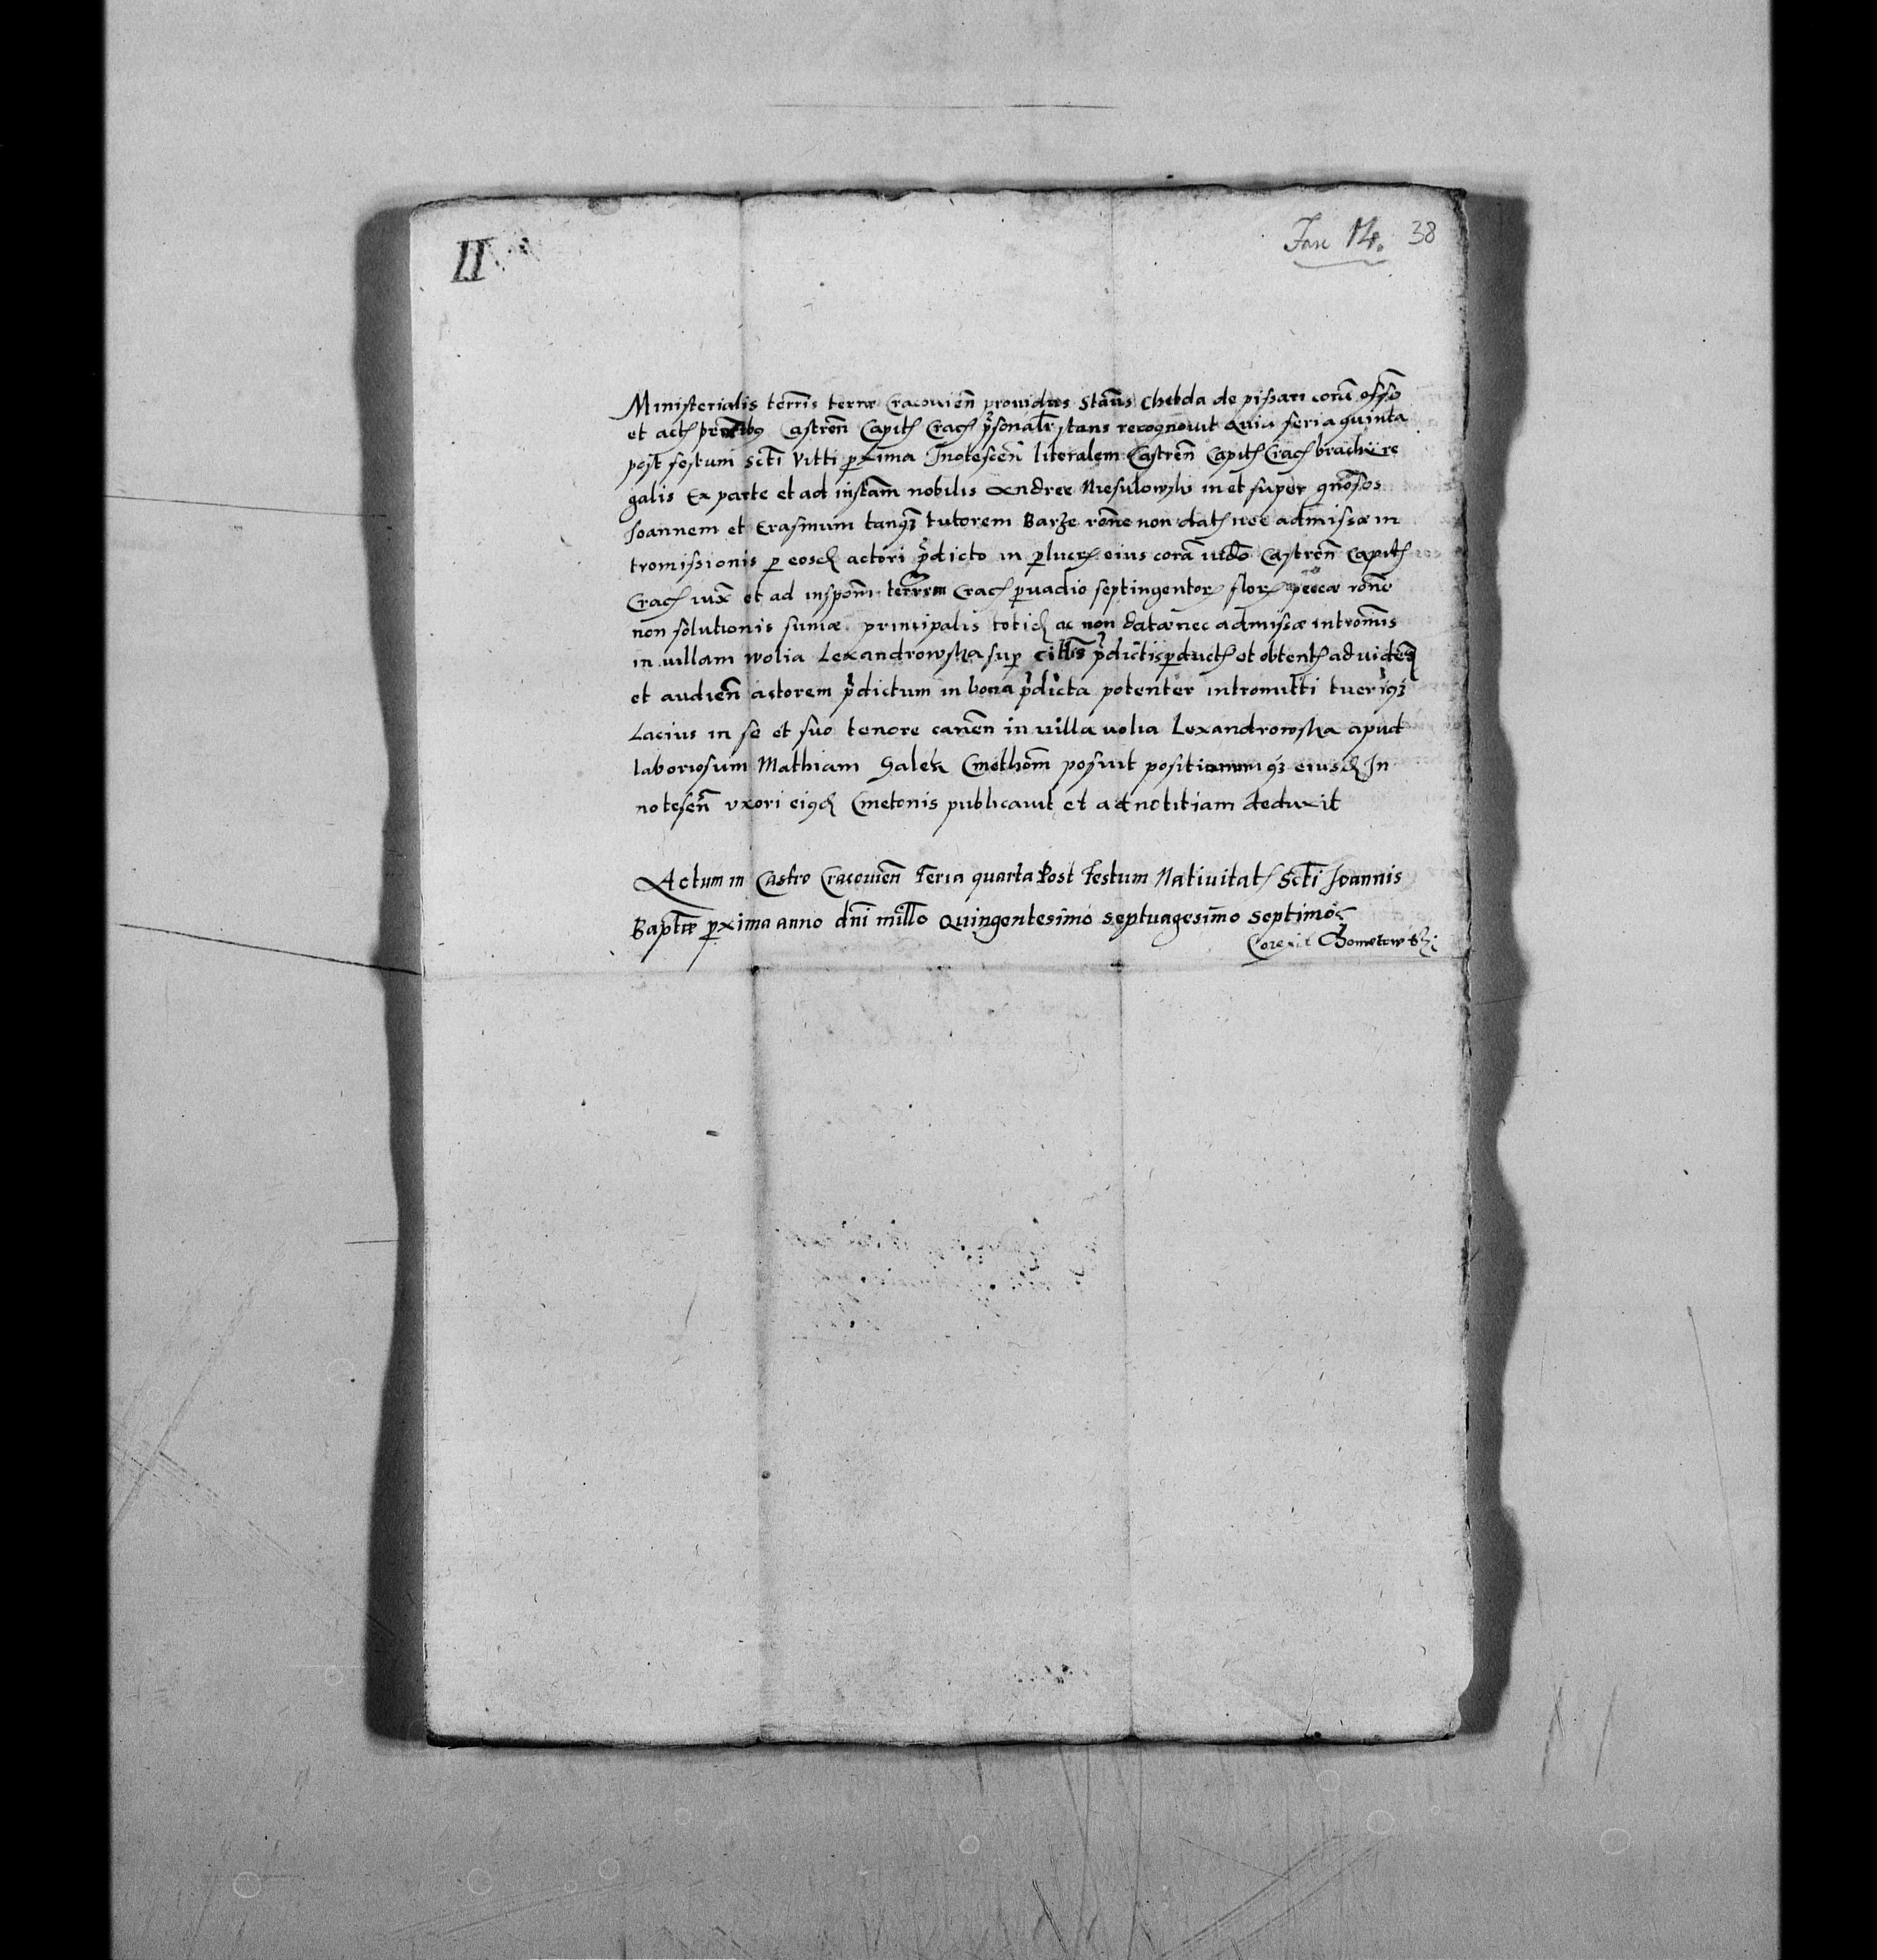 II
Fasc 14. 38
Ministerialis terrīs terræ Cracouien̄ prouidus Stan̄s Chebda de pissari corā offō
et actꝭ pn̄tibꝫ Castren̄ Capitꝭ Cracꝭ p̄sonalr̄ stans recognouit quia feria quinta
post festum Scti Vitti ꝓxima Inotescen̄ literalem Castren̄ Capitꝭ Cracꝭ brachii re
galis Ex parte et ad instām nobilis Andree Niesulowsky in et super gnōsos
Joannem et Erasmum tanqꝫ tutorem Barze rōne non datꝭ nec admissæ in
tromissionis ꝑ eosd actori p̄dicto in ꝑlucrꝭ eius corā iudō Castren̄ Capitꝭ
Cracꝭ iux̄ et ad inspōm terrem Cracꝭ ꝓ uadio septingentorꝭ florꝭ pecc̄æ rōne
non solutionis sum̄æ principalis totid ac non datæ nec admissæ intromis
in uillam wolia Lexandrowska suꝑ citt̄bs p̄dictis ꝑductꝭ et obtentꝭ ad uiden̄
et audien̄ actorem p̄dictum in bona p̄dicta potenter intromitti tueriqꝫ
Lacius in se et suo tenore canen̄ in uilla uolia Lexandrowska apud
laboriosum Mathiam Galek Cmethom̄ posuit positionemqꝫ eiusd In
notescn̄ vxori eiꝰd Cmetonis publicauit et ad notitiam deduxit
Actum in Castro Cracouien̄ Feria quarta Post Festum Natiuitatꝭ Scti Joannis
Baptæ ꝓxima anno dn̄i mill̄o Quingentesimo Septuagesimo Septimo
Corexit Gometowski